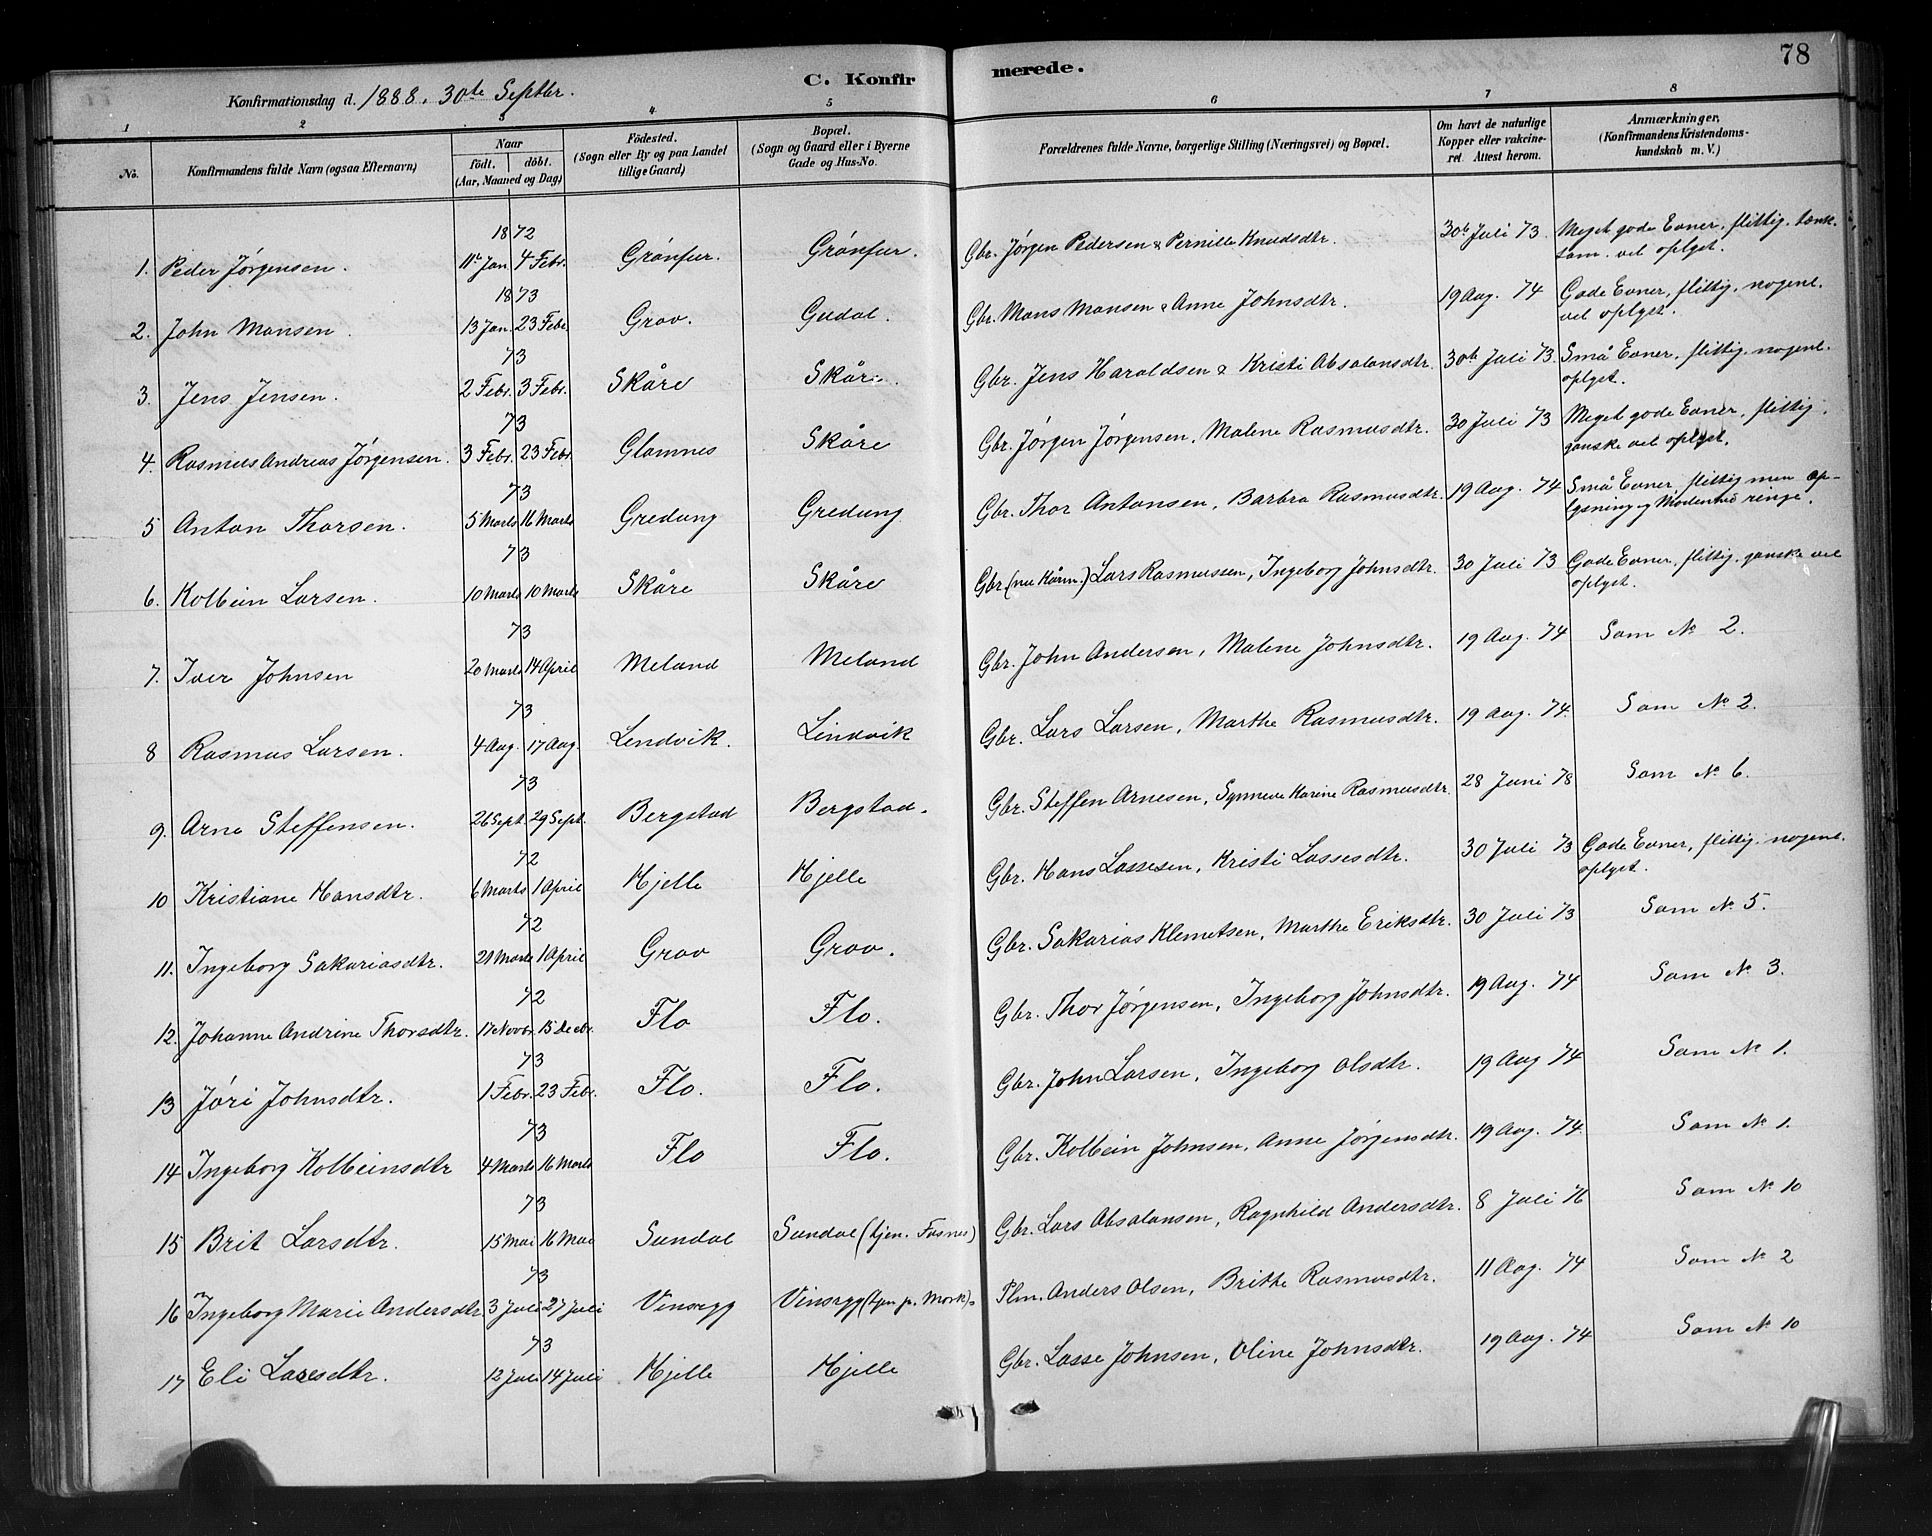 78
C. Konfirmerede.
Konfirmationsdag d. 1888. 30te Septbr.
1 2 3 4 5 6 7 8
No. Konfirmandens fulde Navn (ogsaa Efternavn) Naar födt. döbt. (Aar, Maaned og Dag) Födested. (Sogn eller By og paa Landet tillige Gaard) Bopæl. (Sogn og Gaard eller i Byerne Gade og Hus-No. Forældrenes fulde Navne, borgerlige Stilling (Næringsvei) og Bopæl. Om havt de naturlige Kopper eller vakcineret. Attest herom. Anmærkninger. (Konfirmandens Kristendomskundskab m. V.)
1. Peder Jørgensen. 1872 11te Jan. 4 Febr. Grönfur. Grönfur. Gbr. Jørgen Pedersen & Pernille Knudsdtr. 30te Juli 73. Meget gode Evner, flittig, tænksom. vel oplyst.
2. John Monsen. 1873 13 Jan. 23 Febr. Grov. Gudal. Gbr. Mons Monsen & Anne Johnsdtr. 19 Aug. 74 Gode Evner, flittig. nogenl. vel oplyst.
3. Jens Jensen. 73 2 Febr. 3 Febr. Skåre Skåre. Gbr. Jens Haraldsen & Kristi Absalonsdtr. 30te Juli 73. Små Evner, flittig. nogenl. oplyst.
4. Rasmus Andreas Jørgensen. 73 3 Febr. 23 Febr Glomnes Skåre Gbr. Jørgen Jørgensen, Malene Rasmusdtr. 30 Juli 73 Meget gode Evner, flittig, ganske vel oplyst.
5 Anton Thorsen. 73 5 Marts 16 Marts Gredung Gredung Gbr. Thor Antonsen, Barbra Rasmusdtr. 19 Aug. 74 Små Evner, flittig men oplysning og Modenhed ringe.
6. Kolbein Larsen. 73 10 Marts 10 Marts Skåre Skåre Gbr. (nu Kårm.) Lars Rasmussen, Ingeborg Johnsdtr. 30 Juli 73 Gode Evner, flittig. ganske vel oplyst.
7. Iver Johnsen 73 20 Marts 14 April Meland Meland Gbr. John Andersen, Malene Johnsdtr. 19 Aug. 74 Som No 2.
8 Rasmus Larsen. 73 4 Aug. 17 Aug. Lindvik. Lindvik Gbr. Lars Larsen, Marthe Rasmusdtr. 19 Aug. 74. Som No 2.
9. Arne Steffensen. 73 26 Sept. 29 Sept. Bergstad Bergstad. Gbr. Steffen Arnesen, Synneve Karine Rasmusdtr. 28 Juni 78 Som No 6.
10 Kristiane Hansdtr. 72 6 Marts 1 April Hjelle Hjelle Gbr. Hans Lassesen, Kristi Lassesdtr. 30 Juli 73 Gode Evner, flittig. nogenl. oplyst.
11. Ingeborg Sakariasdtr. 72 21 Marts 1 April Grov Grov. Gbr. Sakarias Klemetsen, Marthe Eriksdtr. 30 Juli 73 Som No 5.
12. Johanne Andrine Thorsdtr. 72 17 Novbr. 15 Decbr. Flo Flo. Gbr. Thor Jørgensen, Ingeborg Johnsdtr. 19 Aug. 74 Som No 3.
13 Jóri Johnsdtr. 73 1 Febr. 23 Febr. Flo. Flo. Gbr. John Larsen, Ingeborg Olsdtr. 19 Aug 74 Som No 1.
14 Ingeborg Kolbeinsdtr 73 4 Marts 16 Marts Flo Flo. Gbr. Kolbein Johnsen, Anne Jørgensdtr. 19 Aug. 74. Som No 1.
15 Brit Larsdtr. 73 15 Mai 16 Mai Sundal Sundal (tjen. Fosnes) Gbr. Lars Absalonsen, Ragnhild Andersdtr. 8 Juli 76 Som No 10
16 Ingeborg Marie Andersdtr. 73 3 Juli 27 Juli Vinsrygg Vinsrygg (tjen. p. Mork). Plm. Anders Olsen, Brithe Rasmusdtr. 11 Aug. 74 Som No 2
17 Eli Lassesdtr. 73 12 Juli 14 Juli Hjelle Hjelle Gbr. Lasse Johnsen, Oline Johnsdtr. 19 Aug. 74 Som No 10